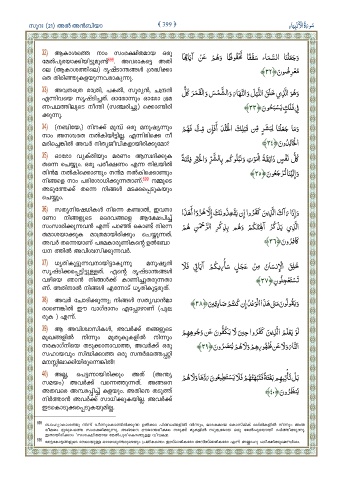 സൂറഃ (21) അൽ അൻബിയാ
( 399 )
سُورَةُ الأنبِيَاء
32) ആകാശത്തെ നാം സംരക്ഷിതമായ ഒരു
മേൽപുരയാക്കിയിട്ടുണ്ട്. അവരാകട്ടെ അതി
ലെ (ആകാശത്തിലെ) ദൃഷ്ടാന്തങ്ങൾ ശ്രദ്ധിക്കാ
തെ തിരിഞ്ഞുകളയുന്നവരാകുന്നു.
وَجَعَلْنَا السَّمَاءَ سَقْفًا مَّحْفُوظًا وَهُمْ عَنْ آيَاتِهَا
مُعْرِضُونَ ﴿٣٢﴾
33) അവനത്രെ രാത്രി, പകൽ, സൂര്യൻ, ചന്ദ്രൻ
എന്നിവയെ സൃഷ്ടിച്ചത്. ഓരോന്നും ഓരോ ഭ്രമ
ണപഥത്തിലൂടെ നീന്തി (സഞ്ചരിച്ചു) ക്കൊണ്ടിരി
ക്കുന്നു.
وَهُوَ الَّذِي خَلَقَ اللَّيْلَ وَالنَّهَارَ وَالشَّمْسَ وَالْقَمَرَ كُلٌّ
فِي فَلَكٍ يَسْبَحُونَ ﴿٣٣﴾
34) (നബിയേ,) നിനക്ക് മുമ്പ് ഒരു മനുഷ്യന്നും
നാം അനശ്വരത നൽകിയിട്ടില്ല. എന്നിരിക്കെ നീ
മരിച്ചെങ്കിൽ അവർ നിത്യജീവികളായിരിക്കുമോ?
وَمَا جَعَلْنَا لِبَشَرٍ مِّن قَبْلِكَ الْخُلْدَ أَفَإِن مِّتَّ فَهُمُ
الْخَالِدُونَ ﴿٣٤﴾
35) ഓരോ വ്യക്തിയും മരണം ആസ്വദിക്കുക
തന്നെ ചെയ്യും. ഒരു പരീക്ഷണം എന്ന നിലയിൽ
തിന്മ നൽകിക്കൊണ്ടും നന്മ നൽകിക്കൊണ്ടും
നിങ്ങളെ നാം പരിശോധിക്കുന്നതാണ്. നമ്മുടെ
അടുത്തേക്ക് തന്നെ നിങ്ങൾ മടക്കപ്പെടുകയും
ചെയ്യും.
كُلُّ نَفْسٍ ذَائِقَةُ الْمَوْتِ وَنَبْلُوكُم بِالشَّرِّ وَالْخَيْرِ فِتْنَةً
وَإِلَيْنَا تُرْجَعُونَ ﴿٣٥﴾
36) സത്യനിഷേധികൾ നിന്നെ കണ്ടാൽ, ഇവനാ
ണോ നിങ്ങളുടെ ദൈവങ്ങളെ ആക്ഷേപിച്ച്
സംസാരിക്കുന്നവൻ എന്ന് പറഞ്ഞ് കൊണ്ട് നിന്നെ
തമാശയാക്കുക മാത്രമായിരിക്കും ചെയ്യുന്നത്.
അവർ തന്നെയാണ് പരമകാരുണികന്റെ ഉൽബോ
ധന ത്തിൽ അവിശ്വസിക്കുന്നവർ.
وَإِذَا رَآكَ الَّذِينَ كَفَرُوا إِن يَتَّخِذُونَكَ إِلَّا هُزُوًا أَهَٰذَا
الَّذِي يَذْكُرُ آلِهَتَكُمْ وَهُم بِذِكْرِ الرَّحْمَٰنِ هُمْ
كَافِرُونَ ﴿٣٦﴾
37) ധൃതികൂട്ടുന്നവനായിട്ടാകുന്നു മനുഷ്യൻ
സൃഷ്ടിക്കപ്പെട്ടിട്ടുള്ളത്. എന്റെ ദൃഷ്ടാന്തങ്ങൾ
വഴിയെ ഞാൻ നിങ്ങൾക്ക് കാണിച്ചുതരുന്നതാ
ണ്. അതിനാൽ നിങ്ങൾ എന്നോട് ധൃതികൂട്ടരുത്.
خُلِقَ الْإِنسَانُ مِنْ عَجَلٍ سَأُرِيكُمْ آيَاتِي فَلَا
تَسْتَعْجِلُونِ ﴿٣٧﴾
38) അവർ ചോദിക്കുന്നു; നിങ്ങൾ സത്യവാൻമാ
രാണെങ്കിൽ ഈ വാഗ്ദാനം എപ്പോഴാണ് (പുല
രുക ) എന്ന്.
وَيَقُولُونَ مَتَىٰ هَٰذَا الْوَعْدُ إِن كُنتُمْ صَادِقِينَ ﴿٣٨﴾
39) ആ അവിശ്വാസികൾ, അവർക്ക് തങ്ങളുടെ
മുഖങ്ങളിൽ നിന്നും മുതുകുകളിൽ നിന്നും
നരകാഗ്നിയെ തടുക്കാനാവാത്ത, അവർക്ക് ഒരു
സഹായവും സിദ്ധിക്കാത്ത ഒരു സന്ദർഭത്തെപ്പറ്റി
മനസ്സിലാക്കിയിരുന്നെങ്കിൽ!
لَوْ يَعْلَمُ الَّذِينَ كَفَرُوا حِينَ لَا يَكُفُّونَ عَن وُجُوهِهِمُ
النَّارَ وَلَا عَن ظُهُورِهِمْ وَلَا هُمْ يُنصَرُونَ ﴿٣٩﴾
40) അല്ല, പെട്ടന്നായിരിക്കും അത് (അന്ത്യ
സമയം) അവർക്ക് വന്നെത്തുന്നത്. അങ്ങനെ
അതവരെ അമ്പരപ്പിച്ച് കളയും. അതിനെ തടുത്ത്
നിർത്താൻ അവർക്ക് സാധിക്കുകയില്ല. അവർക്ക്
ഇടകൊടുക്കപ്പെടുകയുമില്ല.
بَلْ تَأْتِيهِم بَغْتَةً فَتَبْهَتُهُمْ فَلَا يَسْتَطِيعُونَ رَدَّهَا وَلَا هُمْ
يُنظَرُونَ ﴿٤٠﴾